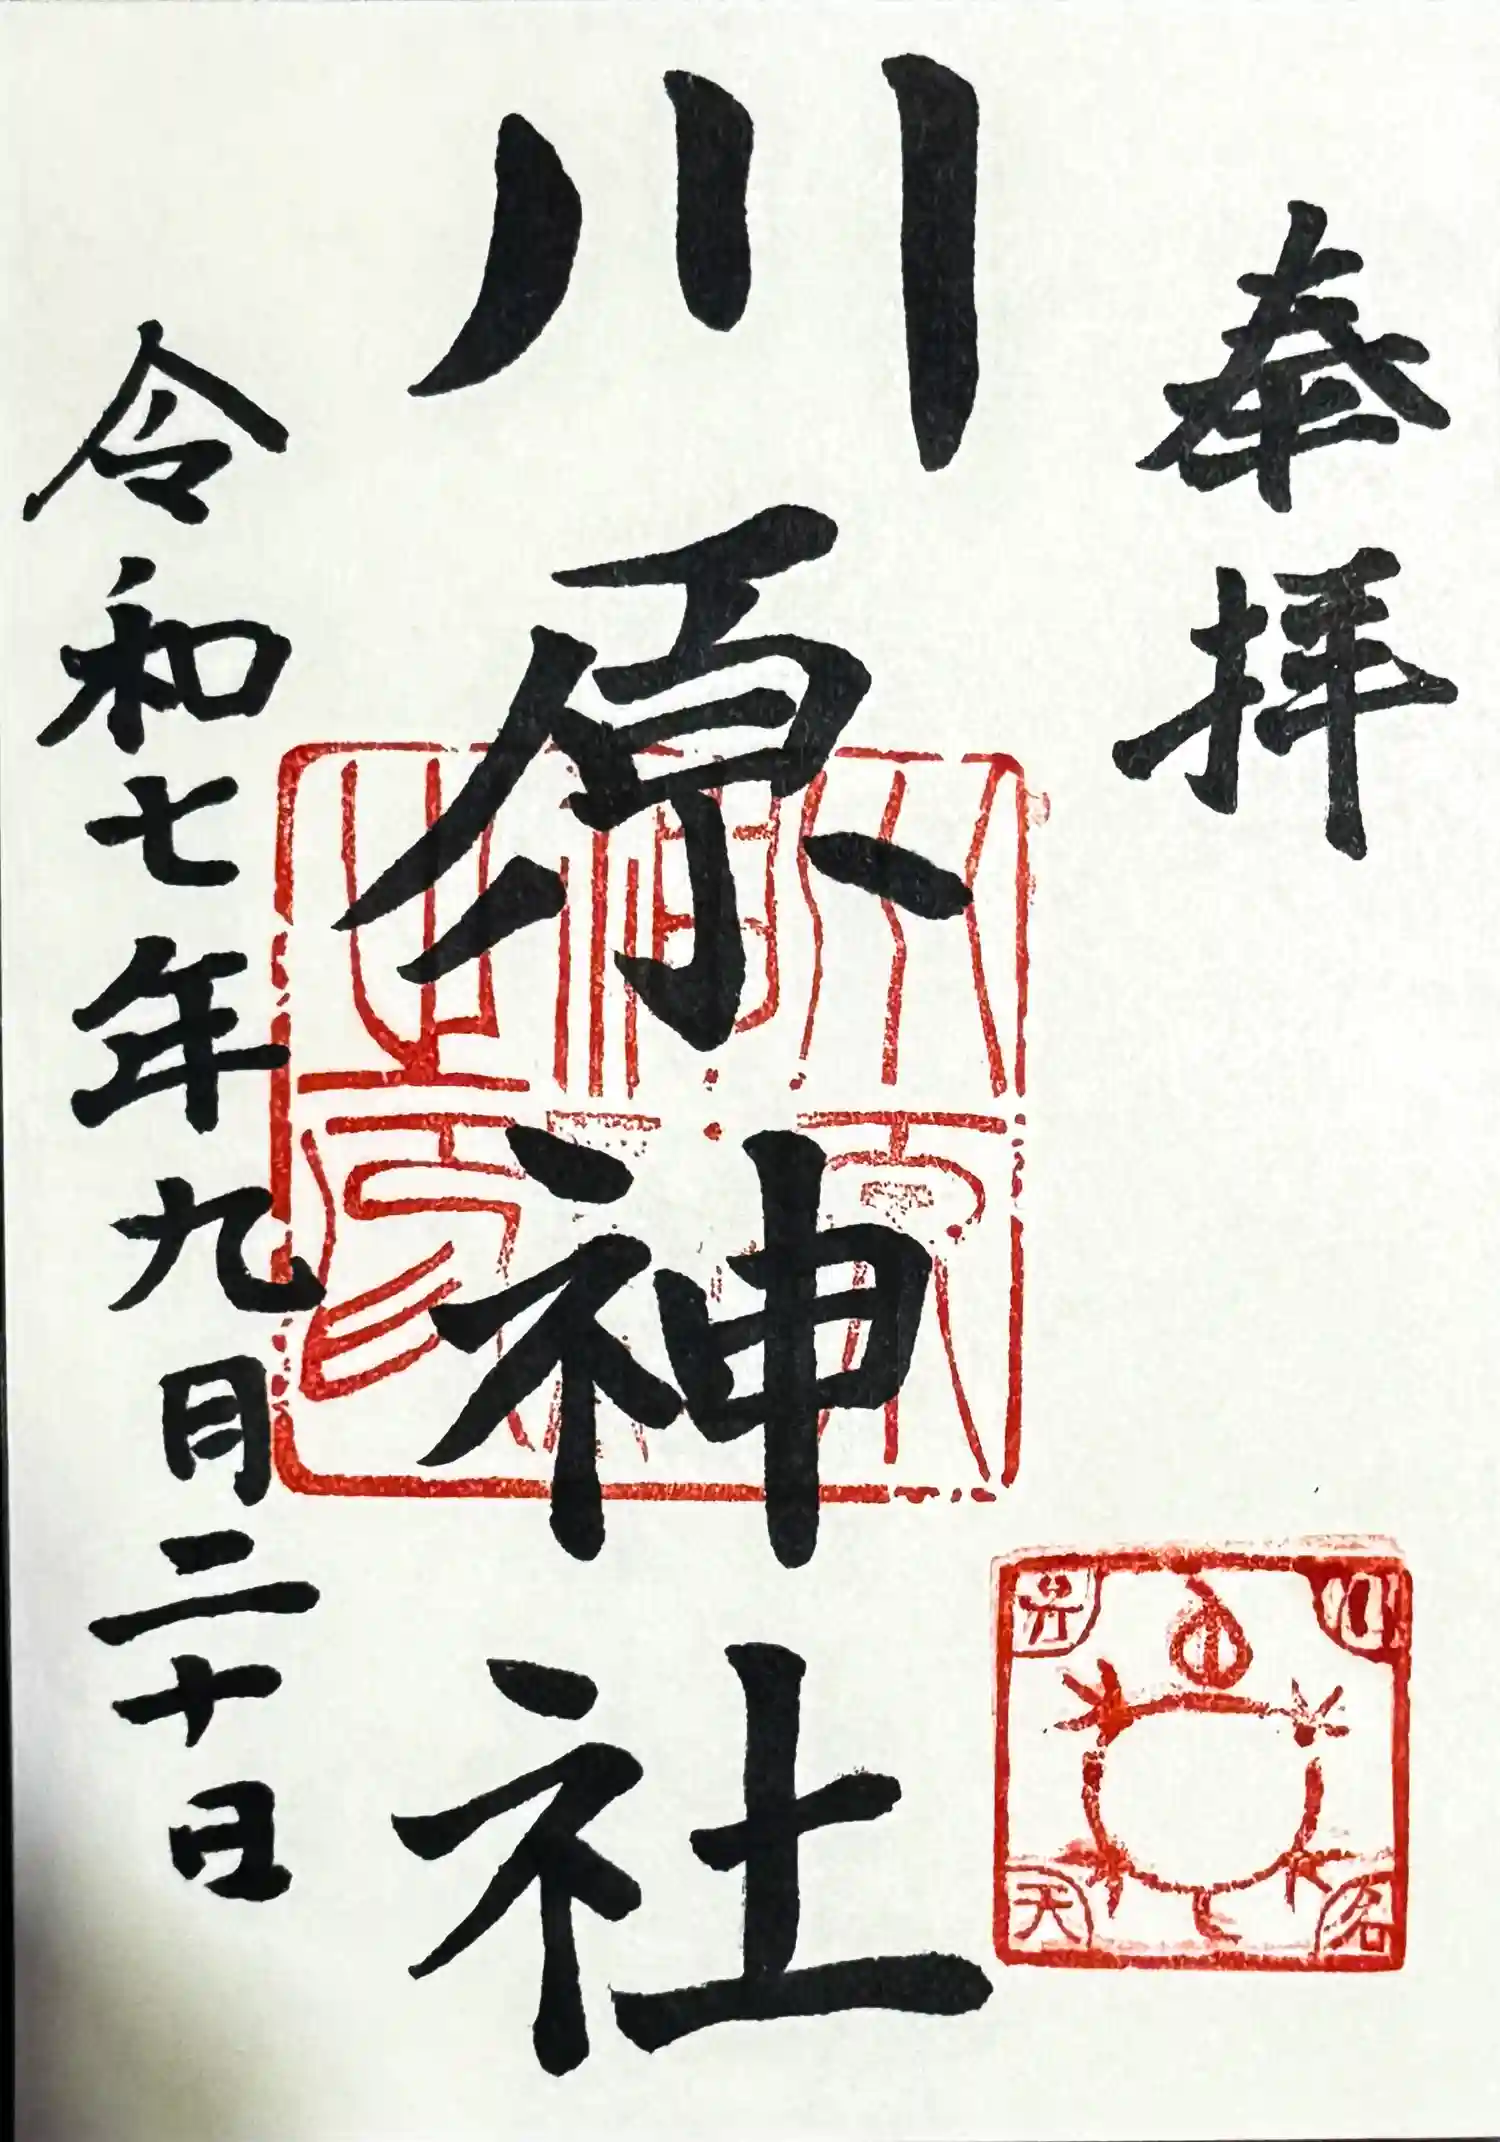 奉拝
川原神社
令和七年九月二十日
川原神社之印
川名弁天